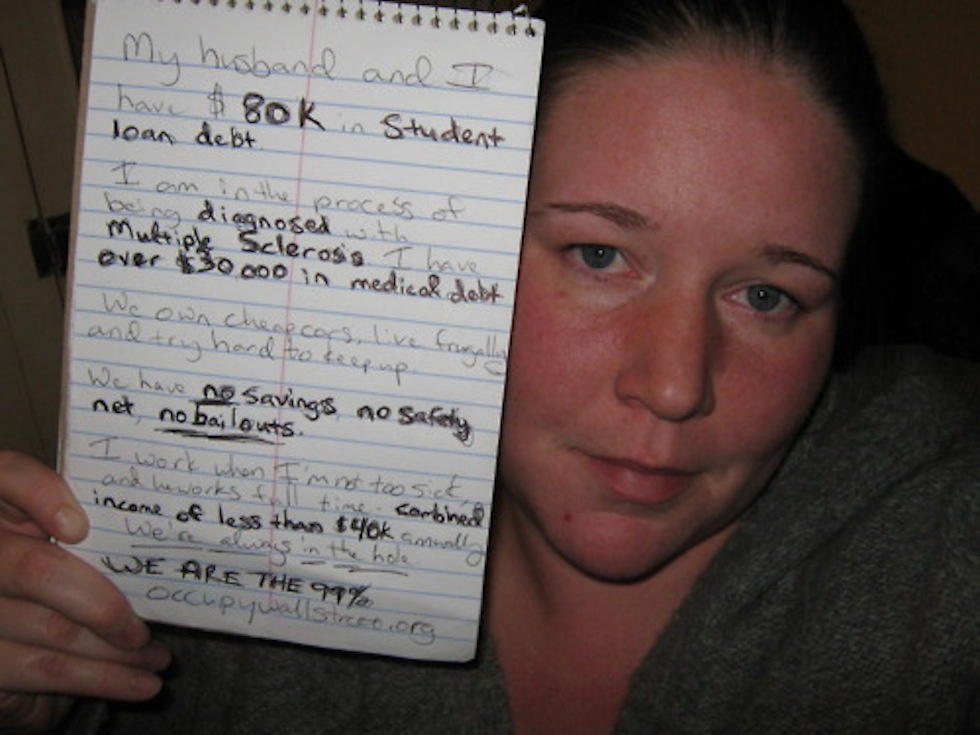 My husband and I
have $80K in Student
loan debt.
I am in the process of
being diagnosed with
Multiple Sclerosis I have
over $30,000 in medical debt
We own cheap cars, live frugally
and try hard to keep up.
We have no savings, no safety
net, no bailouts.
I work when I'm not too sick,
and he works full time - combined
income of less than $40K annually
We're always in the hole.
WE ARE THE 99%
occupywallstreet.org